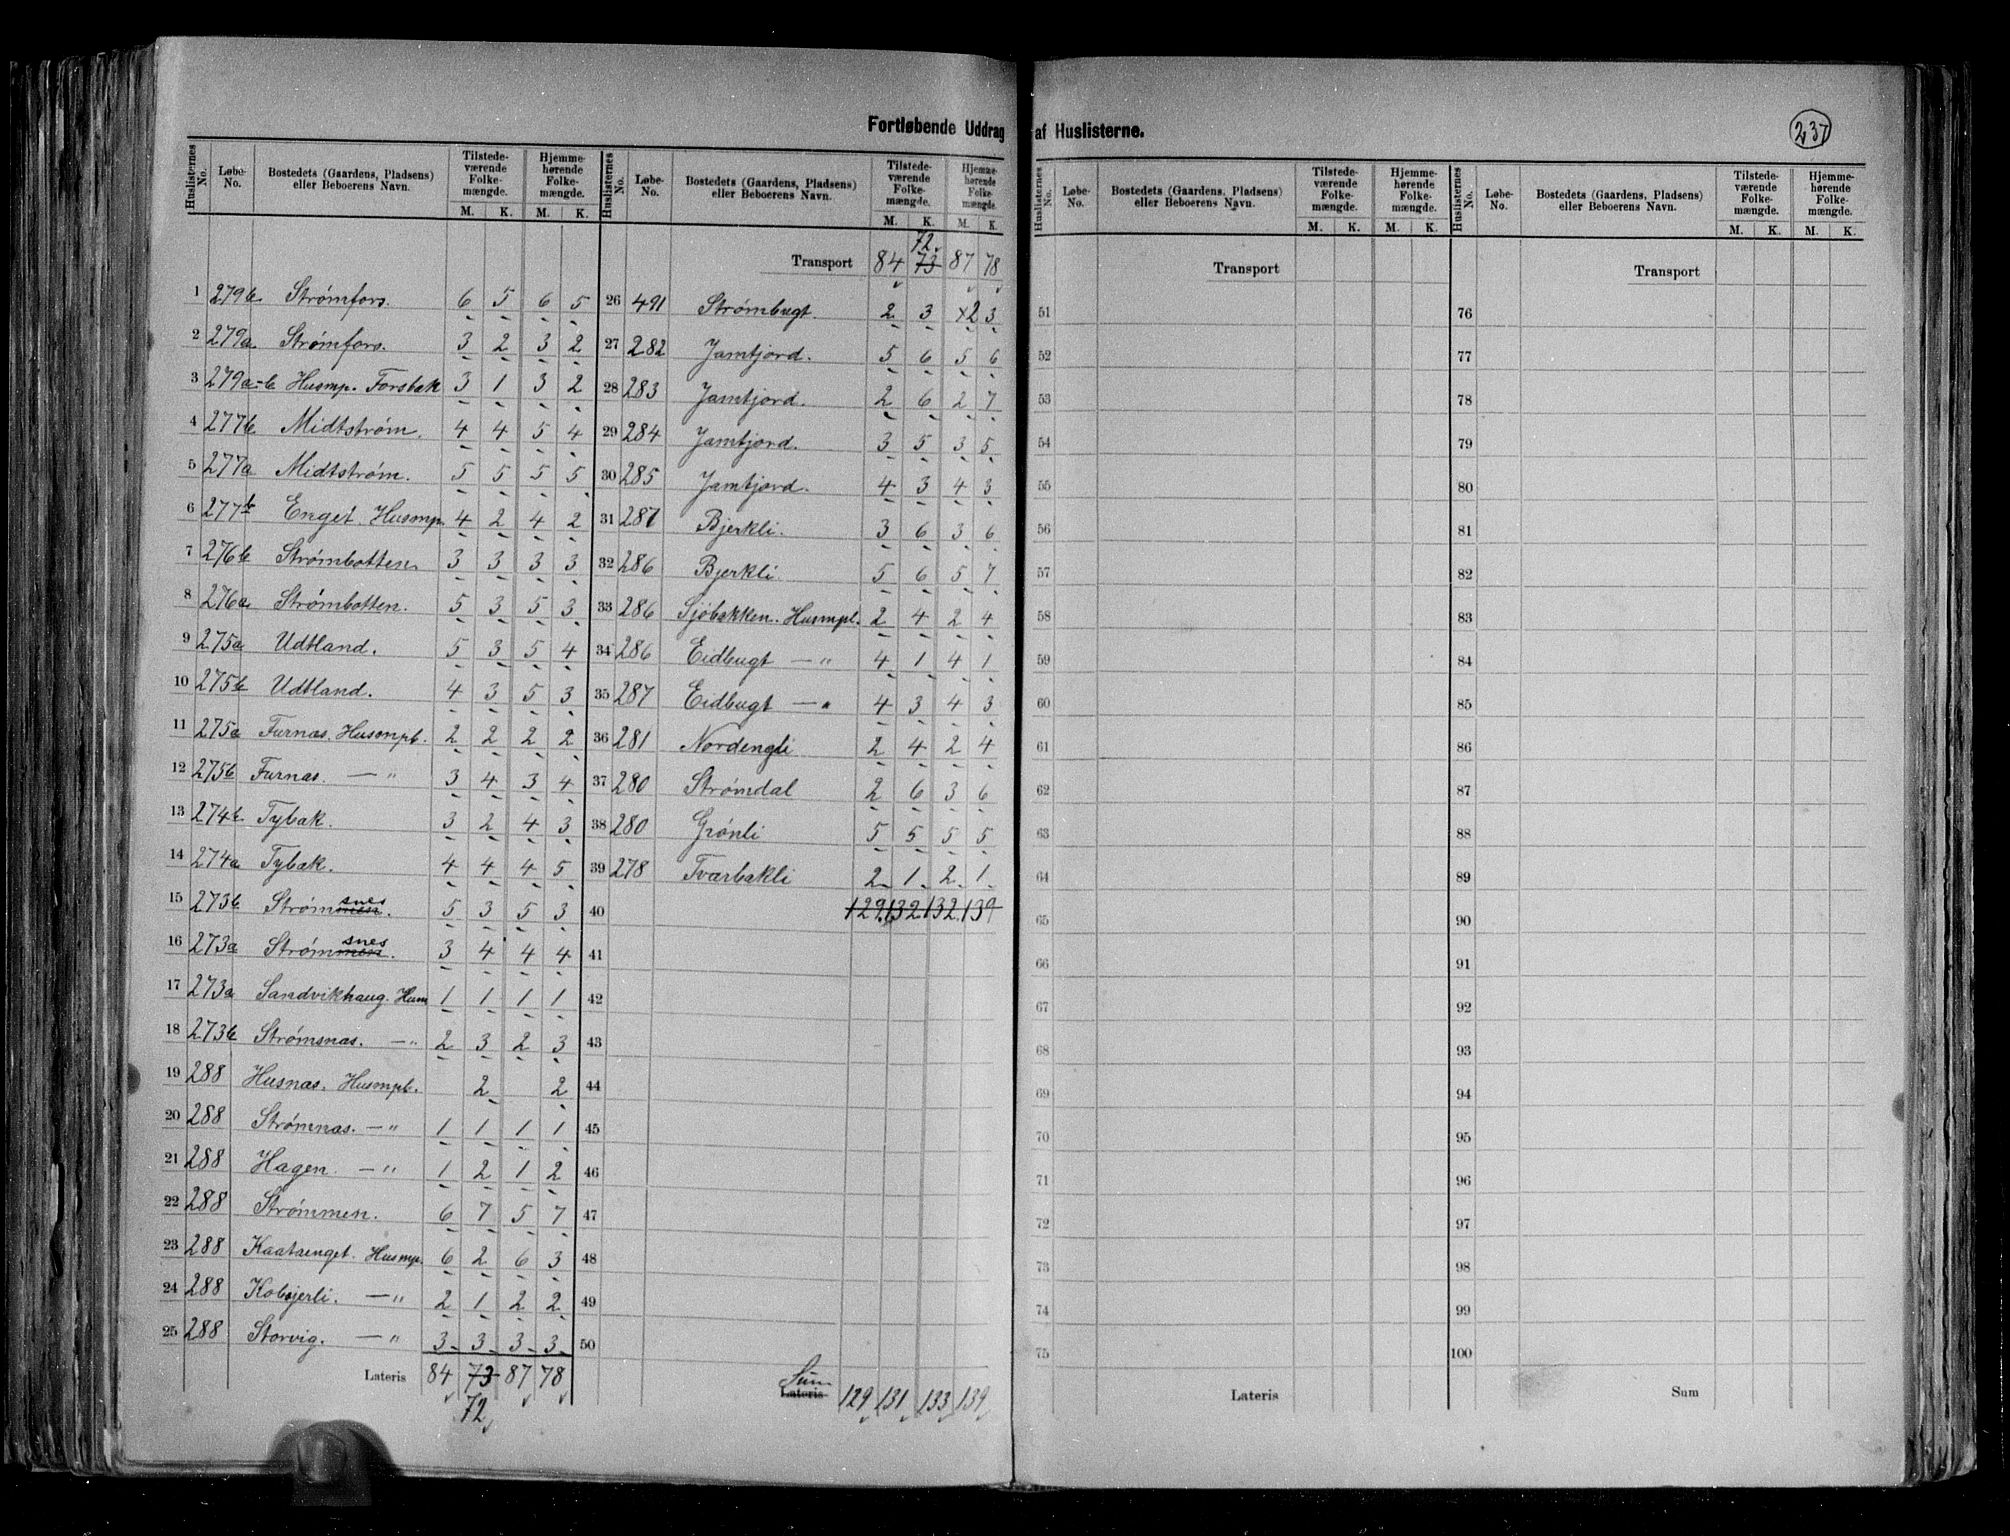 Fortløbende Uddrag af Huslisterne.
237
Huslisternes No. Løbe-No. Bostedets (Gaardens, Pladsens) eller Beboerens Navn. Tilstedeværende Folkemængde. M. K. Hjemmehørende Folkemængde. M. K.
1 279b Strømfors. 6 5 6 5
2 279a Strømfors. 3 2 3 2
3 279a-b Husmp. Forsbak 3 1 3 2
4 277b Midtstrøm. 4 4 5 4
5 277a Midtstrøm. 5 5 5 5
6 277b Enget. Husmp. 4 2 4 2
7 276b Strømbotten 3 3 3 3
8 276a Strømbotten. 5 3 5 3
9 275a Udtland. 5 3 5 4
10 275b Udtland. 4 3 5 3
11 275a Furnas. Husmpl. 2 2 2 2
12 275b Furnas. —"— 3 4 3 4
13 274b Tybak. 3 2 4 3
14 274a Tybak. 4 4 4 5
15 273b Strømmen snes. 5 3 5 3
16 273a Strømmen snes. 3 4 4 4
17 273a Sandvikhaug. Husm 1 1 1 1
18 273b Strømsnas. —" 2 3 2 3
19 288 Husnas. Husmpl. 2 2
20 288 Strømnas. —" 1 1 1 1
21 288 Hagen. —" 1 2 1 2
22 288 Strømmen. 6 7 5 7
23 288 Kaataenget. Husmp. 6 2 6 3
24 288 Kobjerli. —" 2 1 2 2
25 288 Storvig. —" 3 3 3 3
Lateris 84 73 87 78
72
Huslisternes No. Løbe-No. Bostedets (Gaardens, Pladsens) eller Beboerens Navn. Tilstedeværende Folkemængde. M. K. Hjemmehørende Folkemængde. M. K.
72
Transport 84 73 87 78
26 491 Strømbugt. 2 3 x2 3
27 282 Jamtjord. 5 6 5 6
28 283 Jamtjord. 2 6 2 7
29 284 Jamtjord. 3 5 3 5
30 285 Jamtjord. 4 3 4 3
31 287 Bjerkli. 3 6 3 6
32 286 Bjerkli. 5 6 5 7
33 286 Sjöbakken. Husmpl. 2 4 2 4
34 286 Eidbugt —" 4 1 4 1
35 287 Eidbugt —" 4 3 4 3
36 281 Nordengli 2 4 2 4
37 280 Strømdal 2 6 3 6
38 280 Grönli 5 5 5 5
39 278 Tværbakli 2 1 2 1
40 129 132 132 139
41
42
43
44
45
46
47
48
49
50
Sum
Lateris 129 131 133 139
Huslisternes No. Løbe-No. Bostedets (Gaardens, Pladsens) eller Beboerens Navn. Tilstedeværende Folkemængde. M. K. Hjemmehørende Folkemængde. M. K.
Transport
51
52
53
54
55
56
57
58
59
60
61
62
63
64
65
66
67
68
69
70
71
72
73
74
75
Lateris
Huslisternes No. Løbe-No. Bostedets (Gaardens, Pladsens) eller Beboerens Navn. Tilstedeværende Folkemængde. M. K. Hjemmehørende Folkemængde. M. K.
Transport
76
77
78
79
80
81
82
83
84
85
86
87
88
89
90
91
92
93
94
95
96
97
98
99
100
Sum